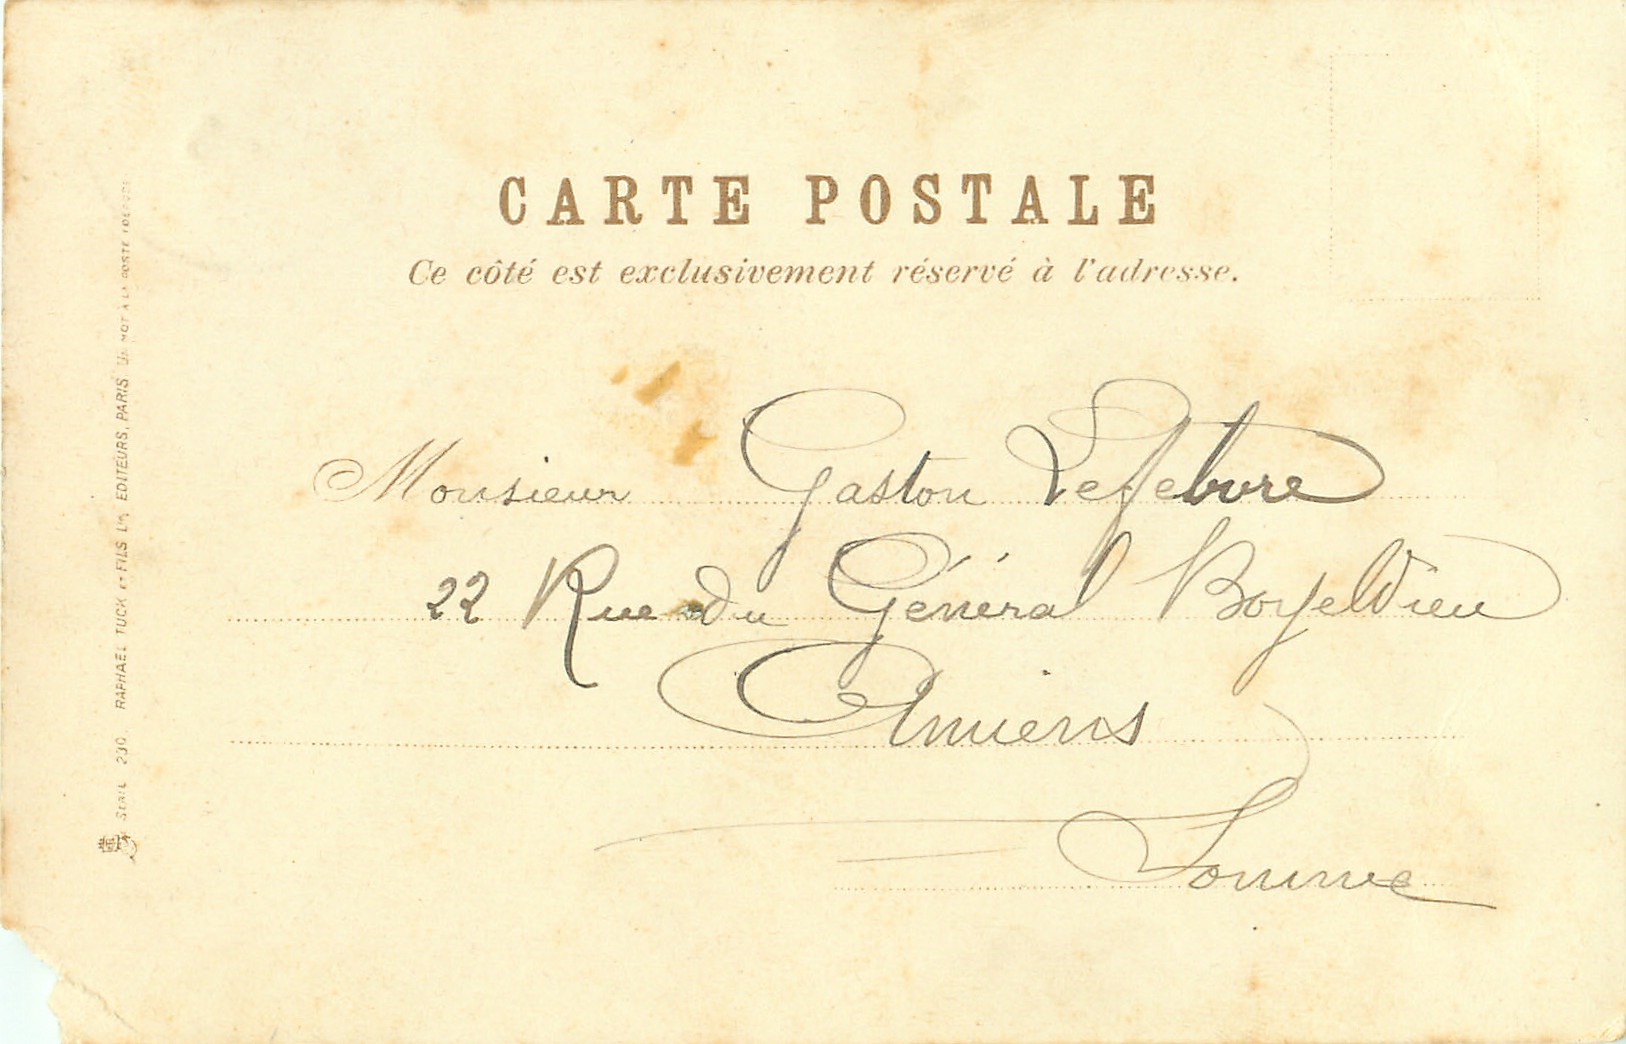 CARTE POSTALE
Ce côté est exclusivement réservé à l'adresse.
Monsieur Gaston Lefebvre
22 Rue du Général Boyeldieu
Amiens
Somme
SERIE 230. RAPHAEL TUCK ET FILS LTD, EDITEURS, PARIS